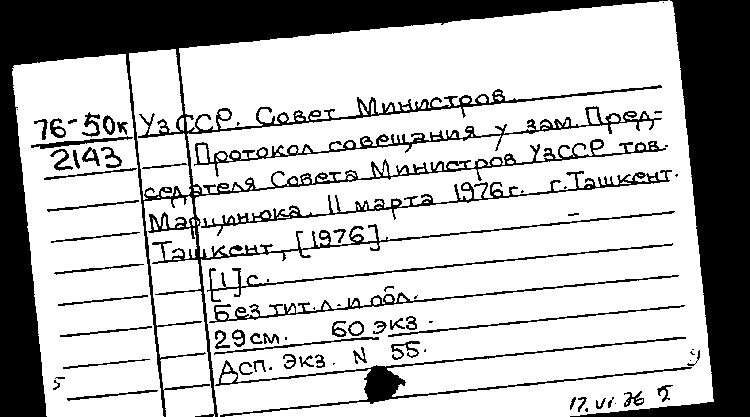 76-50к УзССР. Совет Министров.
2143 Протокол совещания у зам. Пред-
седателя Совета Министров УзССР тов.
Марцинюка. 11 марта 1976 г. г. Ташкент. –
Ташкент, [1976].
[1] с.
Без тит. л. и обл.
29 см. 60 экз.
Дсп. Экз. N 55.
5 У
17.VI.76